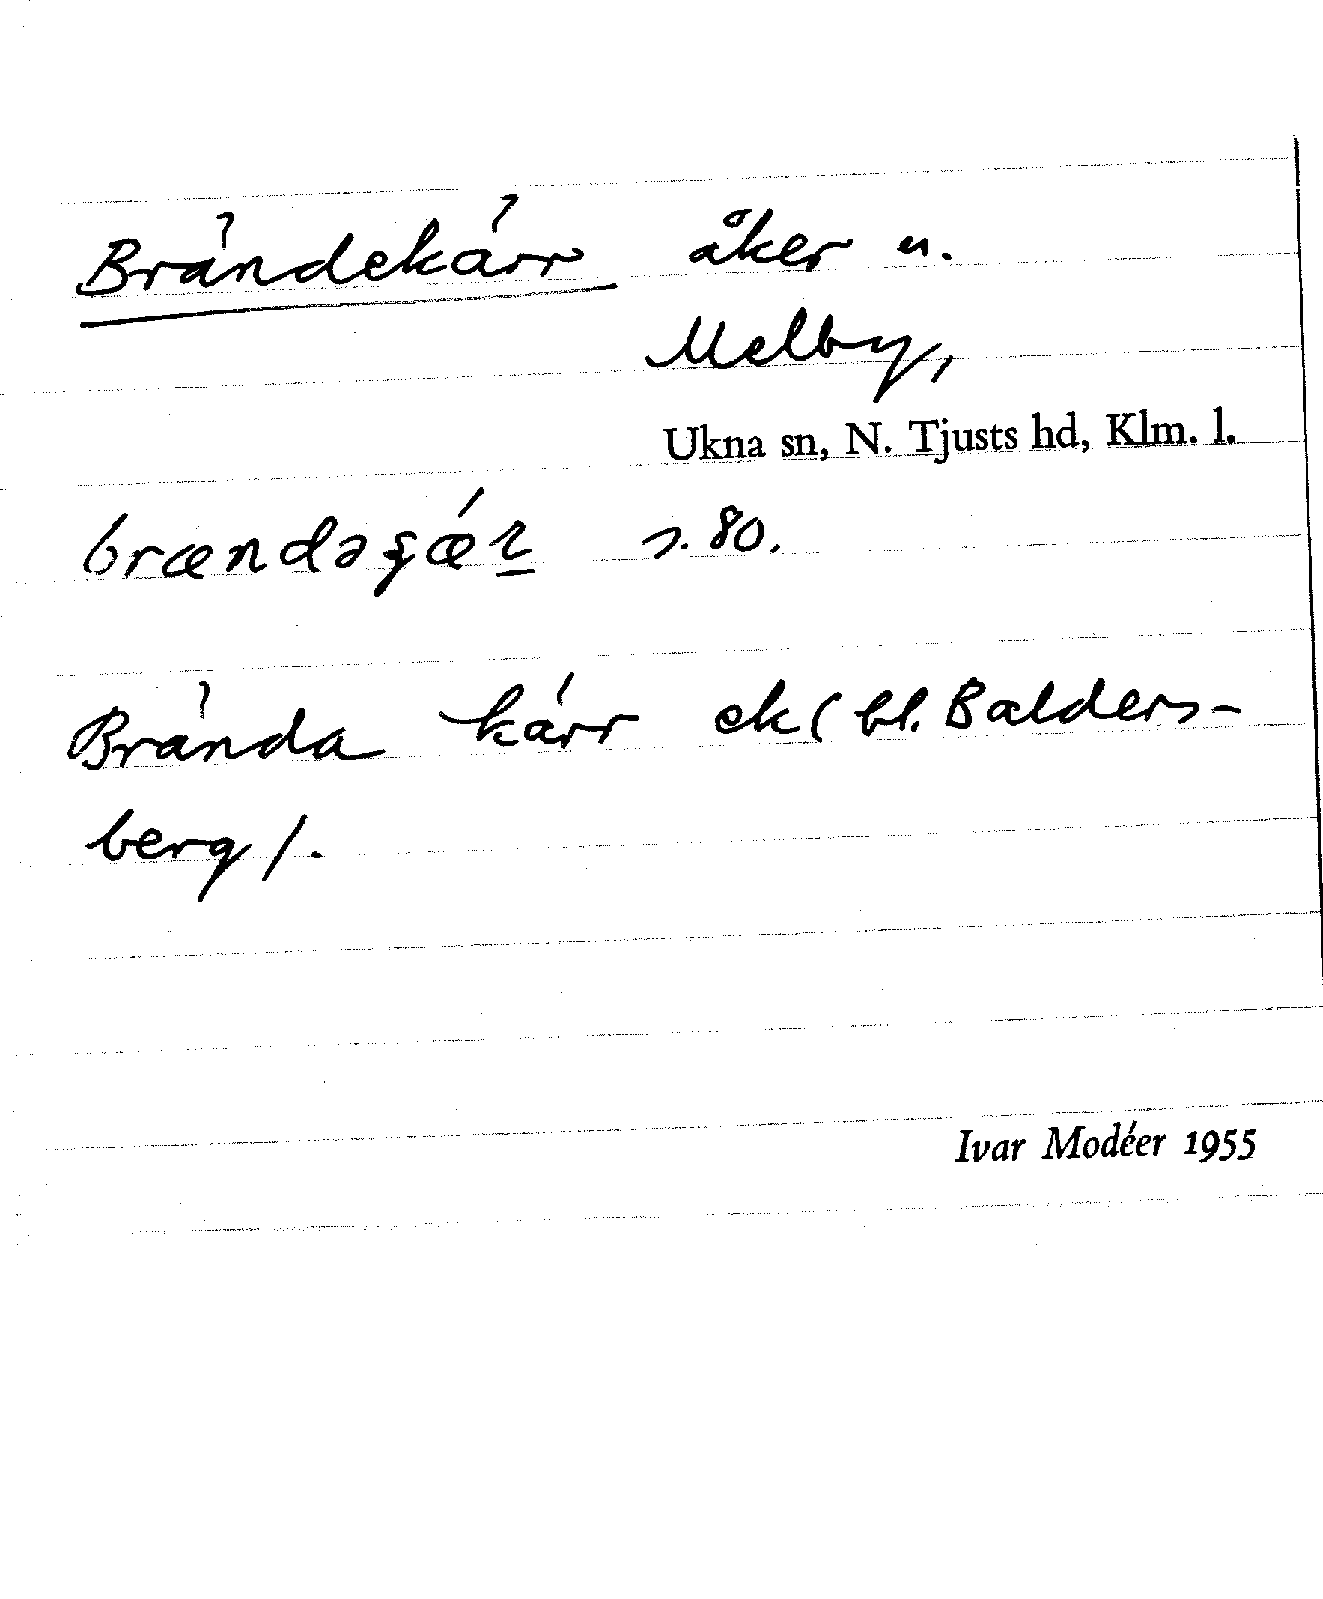 Brändekärr åker u.
Melby,
Ukna sn, N. Tjusts hd, Klm. l.
s. 80.
Brända kärr ek (bl. Balders-
berg).
Ivar Modéer 1955